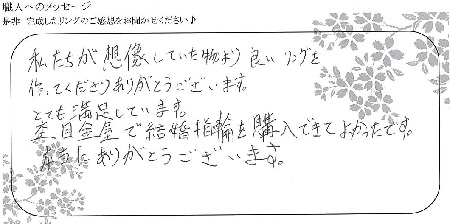 職人へのメッセージ
是非 完成したリングのご感想をお聞かせください♪
私たちが想像していた物より良いリングを
作ってくださりありがとうございます。
とても満足しています。
杢目金屋で結婚指輪を購入できてよかったです。
本当にありがとうございます。